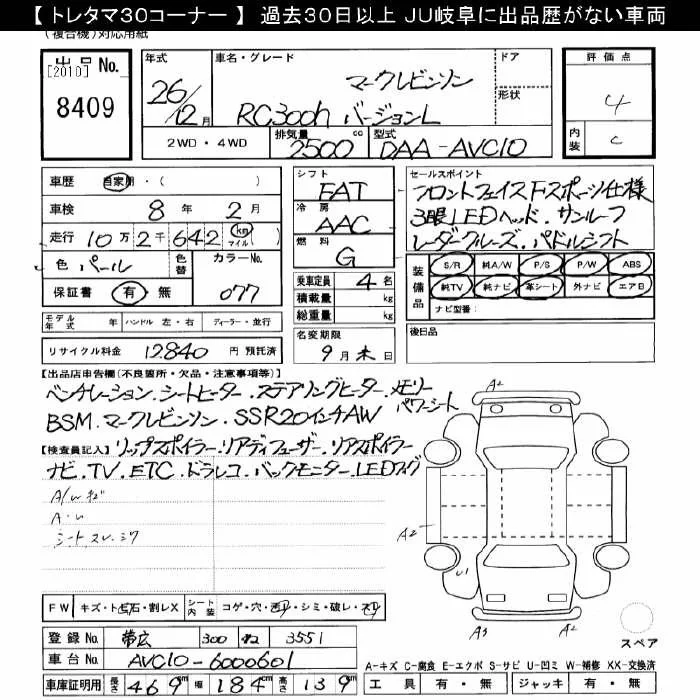 【トレタマ30コーナー】 過去30日以上 JU岐阜に出品歴がない車両
(複合機)対応用紙
出品No.
【2010】
8409
年式
26/12月
車名・グレード
マークレビンソン
RC300h バージョンL
ドア
形状
評価点
4
内装
C
2WD・4WD
排気量
2500cc
型式
DAA-AVC10
車歴 自家用・( )
車検 8年 2月
走行 10万2千642 km マイル ( )
色 パール
色替
カラーNo.
077
保証書 有・無
シフト
FAT
冷房
AAC
燃料
G
乗車定員 4名
積載量 kg
総重量 kg
セールスポイント
フロントフェイスFスポーツ仕様
3眼LEDヘッド・サンルーフ
レーダークルーズ・パドルシフト
装備品
S/R 純A/W P/S P/W ABS
純TV 純ナビ 革シート 外ナビ エアB
ナビ型番:
モデル年式 年 ハンドル 左・右 ディーラー・並行
名変期限
9月末日
後日品
リサイクル料金 12840 円 預託済
【出品店申告欄(不良箇所・欠品・注意事項等)】
ベンチレーション・シートヒーター・ステアリングヒーター・メモリーパワーシート
BSM・マークレビンソン・SSR20インチAW
【検査員記入】 リップスポイラー・リアディフューザー・リアスポイラー
ナビ・TV・ETC・ドラレコ・バックモニター・LEDフォグ
A/Wキズ
A・U
シートスレ・シワ
A2
A2
U1
A3
A2
スペア
FW キズ・ト゚ビ石・割レX
シート内装 コゲ・穴・凹・シミ・破レ・スレ
登録No. 帯広 300 3551
車台No. AVC10-6000601
車庫証明用 長さ 469cm 幅 184cm 高さ 139cm
A-キズ C-腐食 E-エクボ S-サビ U-凹ミ W-補修 XX-交換済
工具 有・無 ジャッキ 有・無